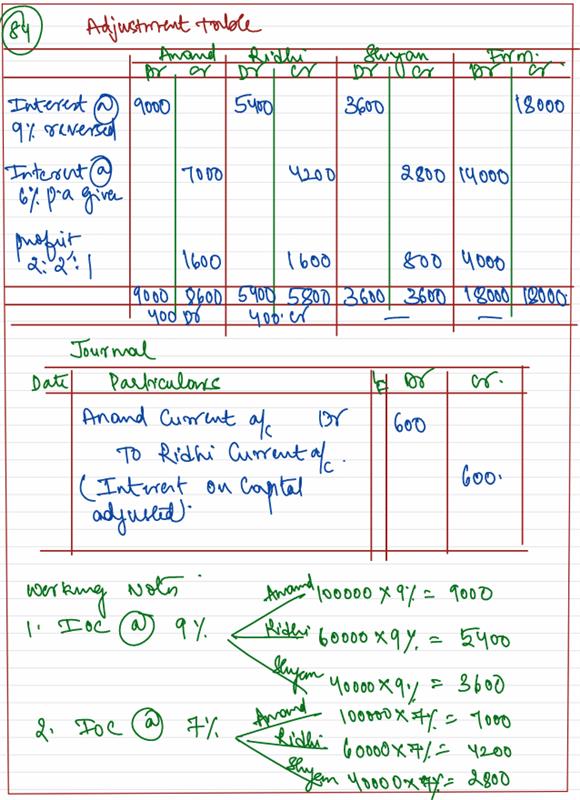 84 Adjustment table
Anand Ridhi Shyam Firm.
Dr Cr Dr Cr Dr Cr Dr Cr
Interest @ 9000 5400 3600 18000
9% reversed
Interest @ 7000 4200 2800 14000
6% p.a given
profit
2:2:1 1600 1600 800 4000
9000 8600 5400 5800 3600 3600 18000 18000
400 Dr 400 Cr — —
Journal
Date Particulars LF Dr Cr.
Anand Current a/c Dr 600
To Ridhi Current a/c. 600.
(Interest on Capital
adjusted).
Working Notes
Anand 100000 × 9% = 9000
1. IOC @ 9% Ridhi 60000 × 9% = 5400
Shyam 40000 × 9% = 3600
Anand 100000 × 7% = 7000
2. IOC @ 7% Ridhi 60000 × 7% = 4200
Shyam 40000 × 7% = 2800